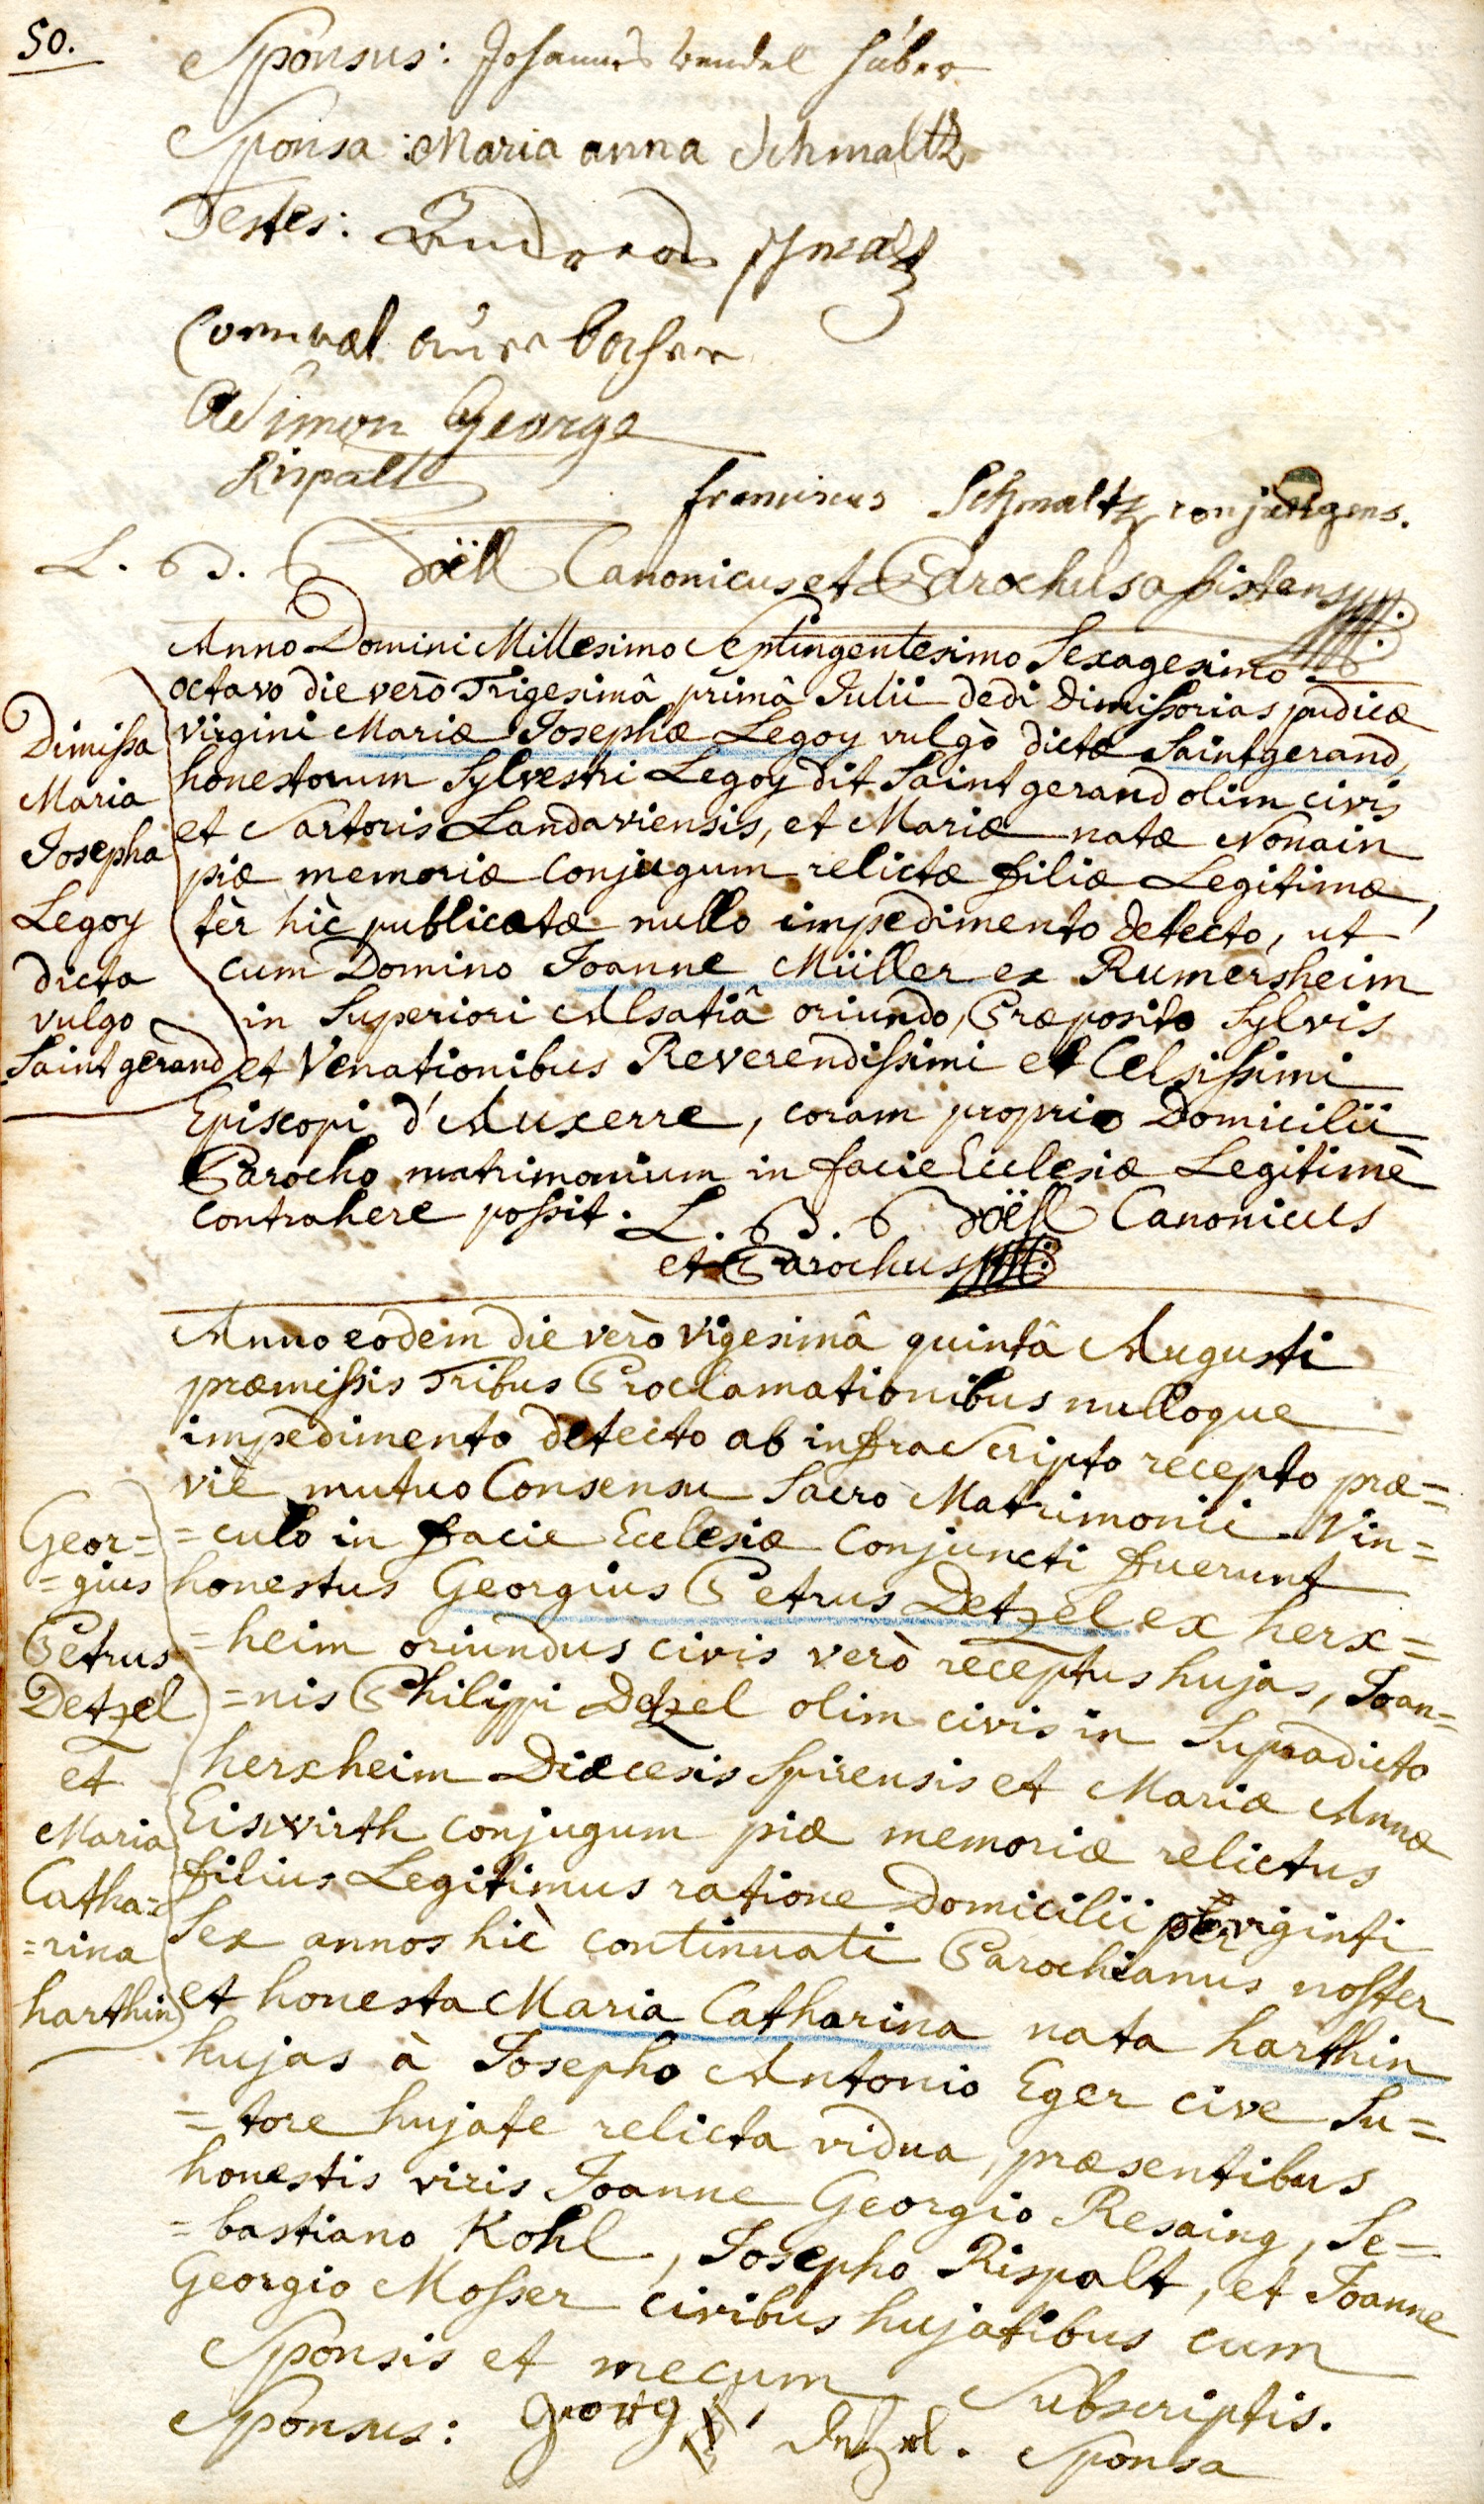 50.
Sponsus: Johannes wendel Huber
Sponsa: Maria anna Schmaltz
Testes: Andreas schmaltz
Simon George
Rispalt
franciscus Schmaltz conjungens.
L. B. B döell Canonicus et Parochus assistens
Anno Domini Millesimo Septingentesimo Sexagesimo
octavo die verò Trigesimâ primâ Julii dedi Dimissorias pudicæ
virgini Mariæ Josephæ Legoy vulgò dictæ Saintgerand,
honestorum Sylvestri Legoy dit Saint gerand olim civis
et Sartoris Landaviensis, et Mariæ natæ Nonain
piæ memoriæ conjugum relictæ filiæ Legitimæ,
tèr hìc publicatæ nullo impedimento detecto, ut
cum Domino Joanne Müller ex Rumersheim
in Superiori Alsatiâ oriundo, Præposito Sylvis
et Venationibus Reverendissimi et Celsissimi
Episcopi d'Auxerre, coram proprio Domicilii
Parocho matrimonium in facie Ecclesiæ Legitimè
contrahere possit. L. B. B döell Canonicus
et Parochus
Dimissa
Maria
Josepha
Legoy
dicta
vulgo
Saint gerand
Anno eodem die verò vigesimâ quintâ Augusti
præmissis Tribus Proclamationibus nulloque
impedimento detecto ab infra Scripto recepto præ=
viè mutuo Consensu Sacro Matrimonii Vin=
=culo in facie Ecclesiæ conjuncti fuerunt
honestus Georgius Petrus Detzel ex herx=
=heim oriundus civis verò receptus hujas, Joan=
=nis Philippi Detzel olim civis in Supradicto
herxheim Diæcesis Spirensis et Mariæ Annæ
Eiswirth conjugum piæ memoriæ relictus
filius Legitimus ratione Domicilii per viginti
Sex annos hìc continuati Parochianus noster
et honesta Maria Catharina nata harthin
hujas à Josepho Antonio Eger cive Su=
=tore hujate relicta vidua, præsentibus
honestis viris Joanne Georgio Resaing, Se=
=bastiano Kohl, Josepho Rispalt, et Joanne
Georgio Mosser civibus hujatibus cum
Sponsis et mecum Subscriptis.
Geor=
=gius
Petrus
Detzel
et
Maria
Catha=
=rina
harthin
Sponsus: georg detzel. Sponsa